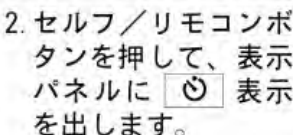 2. セルフ／リモコンボ
タンを押して、表示
パネルに 表示
を出します。